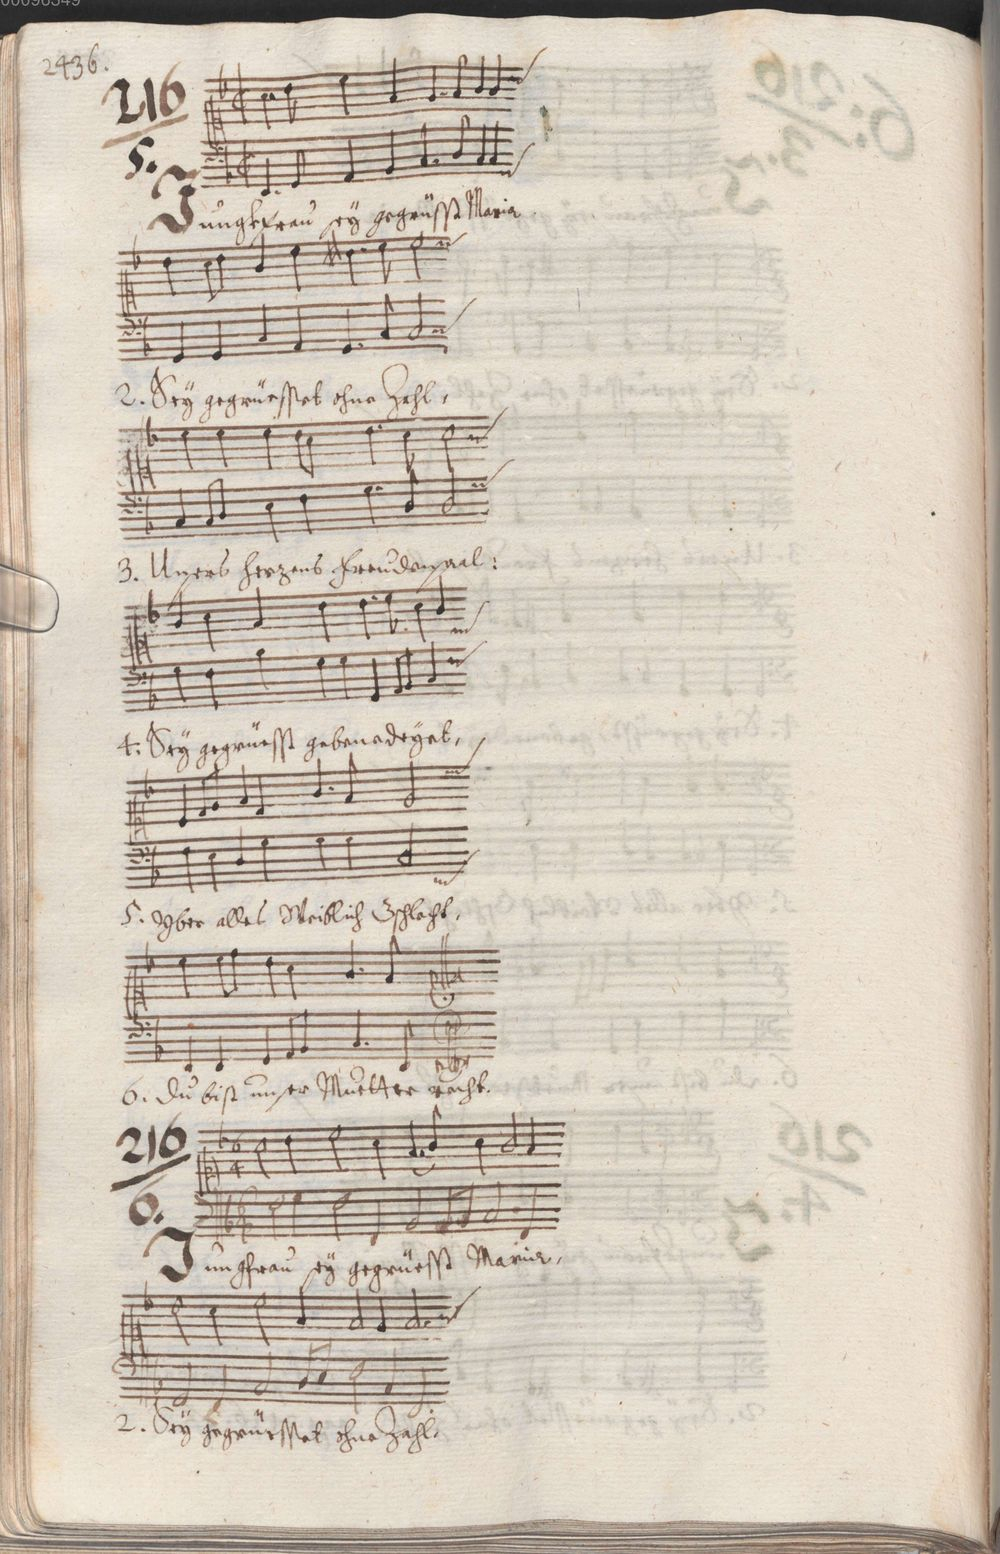 00096349
2436.
216
5.
Jungkfrau sey gegrüsst Maria
2. Sey gegrüesset ohne Zahl,
3. Unsers herzens freudensaal:
4. Sey gegrüesst gebenedeyet,
5. Yber alles Weiblich Gschlecht,
6. du bist unser Muetter recht.
216
6.
Jungfrau sey gegrüesst Maria,
2. Sey gegrüesset ohne Zahl,